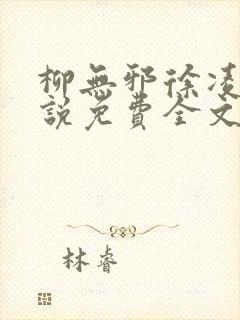 柳無邪徐凌
說免費全文
林睿